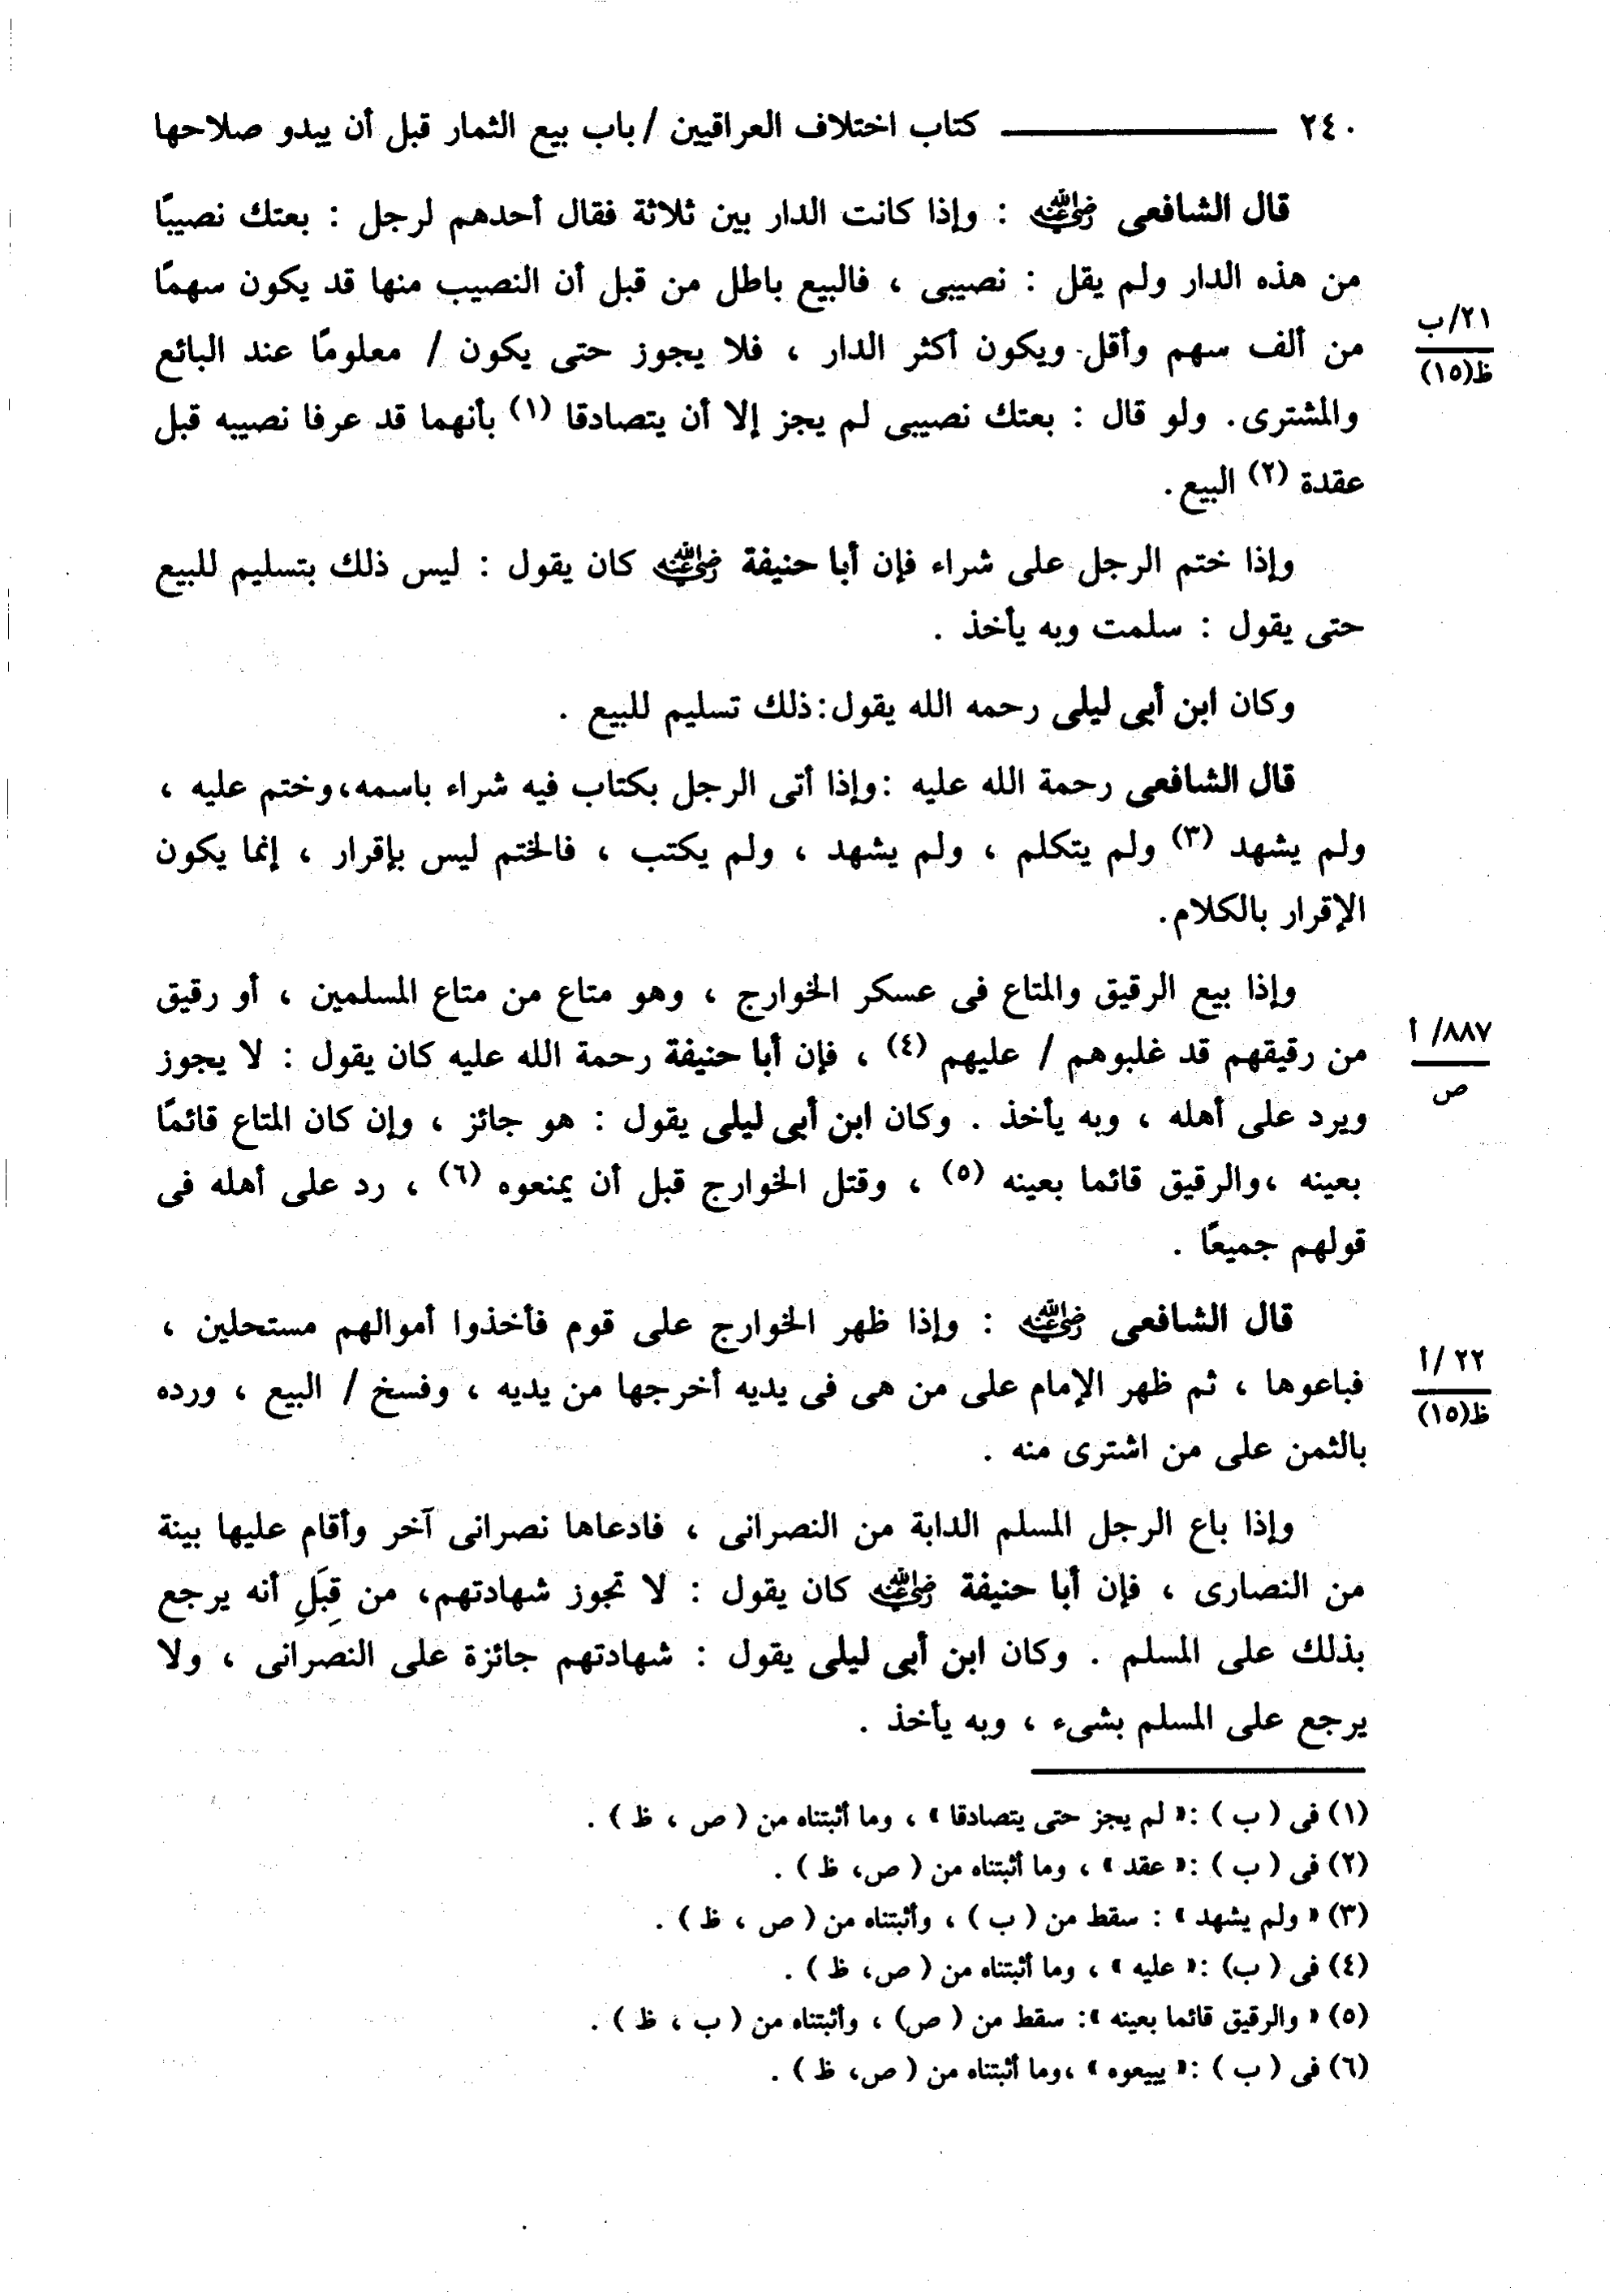 ٢٤٠ ــــــــــــــ كتاب اختلاف العراقيين / باب بيع الثمار قبل أن يبدو صلاحها
قال الشافعى رضي الله عنه : وإذا كانت الدار بين ثلاثة فقال أحدهم لرجل : بعتك نصيبًا
من هذه الدار ولم يقل : نصيبى ، فالبيع باطل من قبل أن النصيب منها قد يكون سهمًا
٢١/ب
من ألف سهم وأقل ويكون أكثر الدار ، فلا يجوز حتى يكون / معلومًا عند البائع
ظ(١٥)
والمشترى. ولو قال : بعتك نصيبى لم يجز إلا أن يتصادقا (١) بأنهما قد عرفا نصيبه قبل
عقدة (٢) البيع.
وإذا ختم الرجل على شراء فإن أبا حنيفة رضي الله عنه كان يقول : ليس ذلك بتسليم للبيع
حتى يقول : سلمت وبه يأخذ .
وكان ابن أبى ليلى رحمه الله يقول:ذلك تسليم للبيع .
قال الشافعى رحمة الله عليه :وإذا أتى الرجل بكتاب فيه شراء باسمه،وختم عليه ،
ولم يشهد (٣) ولم يتكلم ، ولم يشهد ، ولم يكتب ، فالختم ليس بإقرار ، إنما يكون
الإقرار بالكلام.
وإذا بيع الرقيق والمتاع فى عسكر الخوارج ، وهو متاع من متاع المسلمين ، أو رقيق
٨٨٧/ أ
من رقيقهم قد غلبوهم / عليهم (٤) ، فإن أبا حنيفة رحمة الله عليه كان يقول : لا يجوز
ص
ويرد على أهله ، وبه يأخذ . وكان ابن أبى ليلى يقول : هو جائز ، وإن كان المتاع قائمًا
بعينه ،والرقيق قائما بعينه (٥) ، وقتل الخوارج قبل أن يمنعوه (٦) ، رد على أهله فى
قولهم جميعًا .
قال الشافعى رضي الله عنه : وإذا ظهر الخوارج على قوم فأخذوا أموالهم مستحلين ،
٢٢/أ
فباعوها ، ثم ظهر الإمام على من هى فى يديه أخرجها من يديه ، وفسخ / البيع ، ورده
ظ(١٥)
بالثمن على من اشترى منه .
وإذا باع الرجل المسلم الدابة من النصرانى ، فادعاها نصرانى آخر وأقام عليها بينة
من النصارى ، فإن أبا حنيفة رضي الله عنه كان يقول : لا تجوز شهادتهم، من قِبَلِ أنه يرجع
بذلك على المسلم . وكان ابن أبى ليلى يقول : شهادتهم جائزة على النصرانى ، ولا
يرجع على المسلم بشىء ، وبه يأخذ .
(١) فى ( ب ) :« لم يجز حتى يتصادقا » ، وما أثبتناه من ( ص ، ظ ) .
(٢) فى ( ب ) :« عقد » ، وما أثبتناه من ( ص، ظ ) .
(٣) « ولم يشهد » : سقط من ( ب ) ، وأثبتناه من ( ص ، ظ ) .
(٤) فى ( ب) :« عليه » ، وما أثبتناه من ( ص، ظ ) .
(٥) « والرقيق قائما بعينه »: سقط من ( ص) ، وأثبتناه من ( ب ، ظ ) .
(٦) فى ( ب ) :« يبيعوه » ،وما أثبتناه من ( ص، ظ ) .